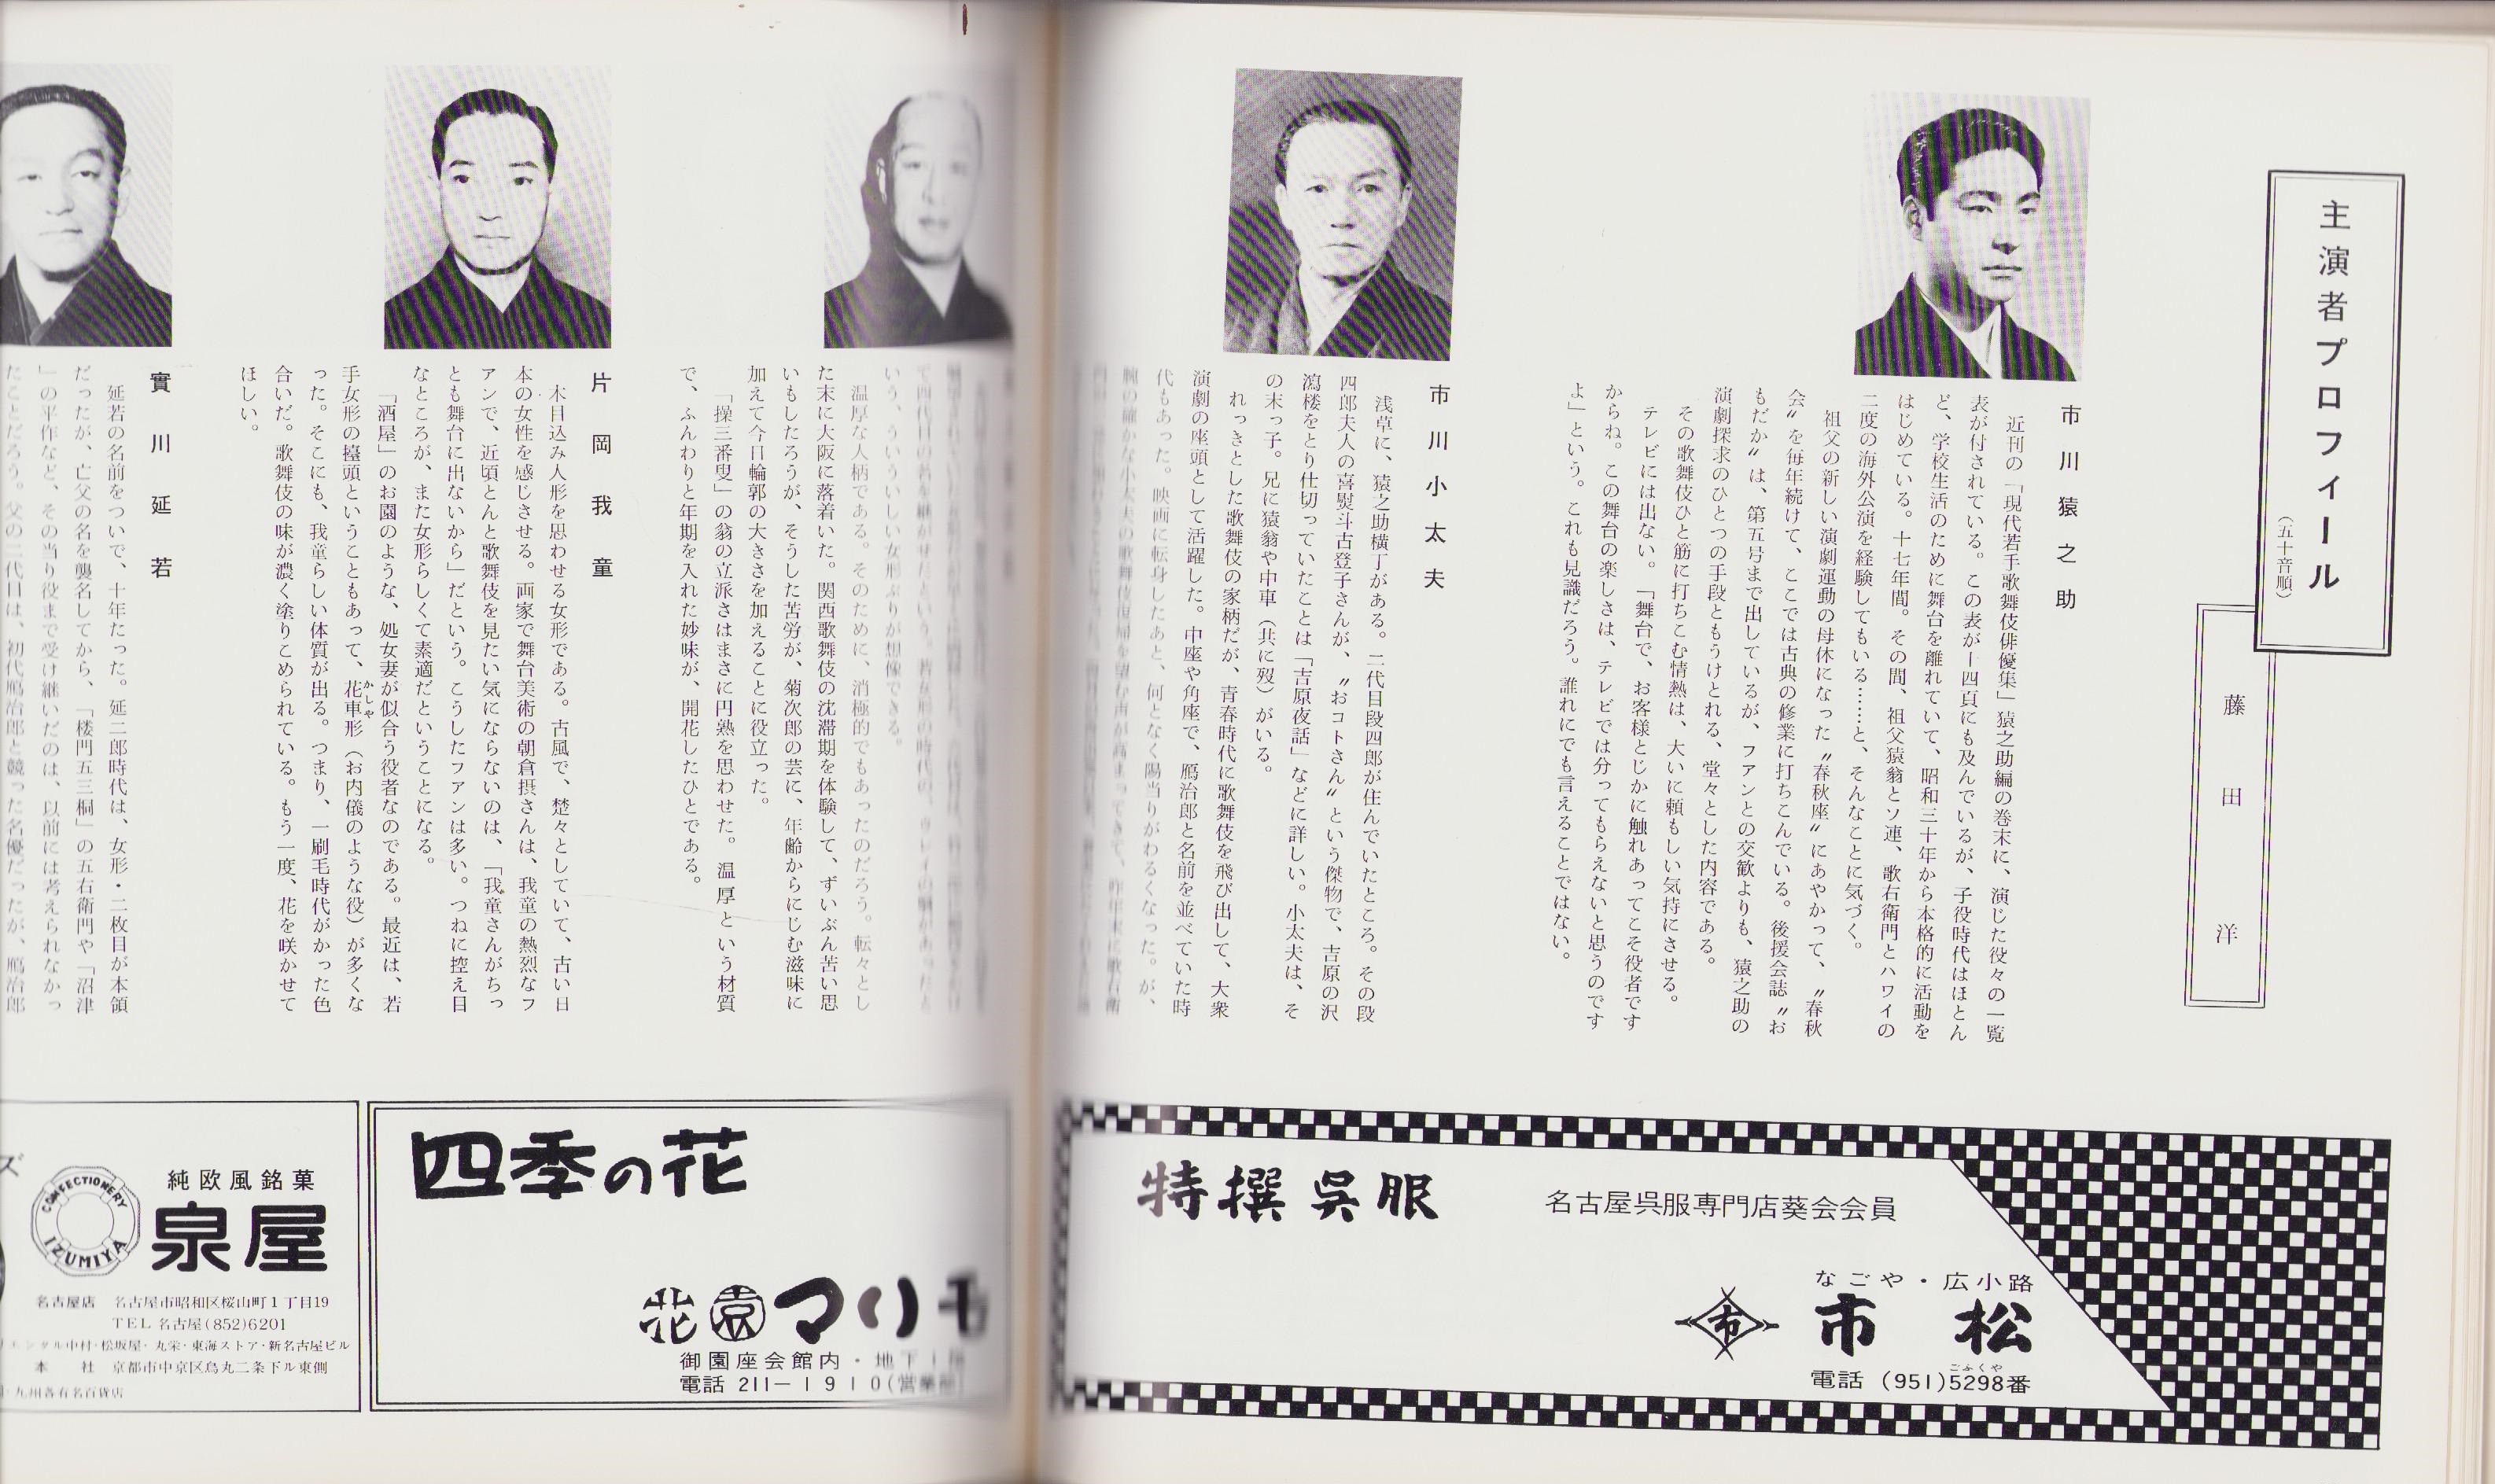 主演者プロフィール
（五十音順）
藤田洋
市川猿之助
近刊の「現代若手歌舞伎俳優集」猿之助編の巻末に、演じた役々の一覧
表が付されている。この表が一四頁にも及んでいるが、子役時代はほとん
ど、学校生活のために舞台を離れていて、昭和三十年から本格的に活動を
はじめている。十七年間。その間、祖父猿翁とソ連、歌右衛門とハワイの
二度の海外公演を経験してもいる………と、そんなことに気づく。
祖父の新しい演劇運動の母休になった〝春秋座〟にあやかって、〝春秋
会〟を毎年続けて、ここでは古典の修業に打ちこんでいる。後援会誌〝お
もだか〟は、第五号まで出しているが、ファンとの交歓よりも、猿之助の
演劇探求のひとつの手段ともうけとれる、堂々とした内容である。
その歌舞伎ひと筋に打ちこむ情熱は、大いに頼もしい気持にさせる。
テレビには出ない。「舞台で、お客様とじかに触れあってこそ役者です
からね。この舞台の楽しさは、テレビでは分ってもらえないと思うのです
よ」という。これも見識だろう。誰れにでも言えることではない。
市川小太夫
浅草に、猿之助横丁がある。二代目段四郎が住んでいたところ。その段
四郎夫人の喜熨斗古登子さんが、〝おコトさん〟という傑物で、吉原の沢
瀉楼をとり仕切っていたことは「吉原夜話」などに詳しい。小太夫は、そ
の末っ子。兄に猿翁や中車（共に歿）がいる。
れっきとした歌舞伎の家柄だが、青春時代に歌舞伎を飛び出して、大衆
演劇の座頭として活躍した。中座や角座で、鴈治郎と名前を並べていた時
代もあった。映画に転身したあと、何となく陽当りがわるくなった。が、
腕の確かな小太夫の歌舞伎復帰を望む声が高まってきて、昨年末に歌右衛
いう、ういういしい女形ぶりが想像できる。
温厚な人柄である。そのために、消極的でもあったのだろう。転々とし
た末に大阪に落着いた。関西歌舞伎の沈滞期を体験して、ずいぶん苦い思
いもしたろうが、そうした苦労が、菊次郎の芸に、年齢からにじむ滋味に
加えて今日輪郭の大きさを加えることに役立った。
「操三番叟」の翁の立派さはまさに円熟を思わせた。温厚という材質
で、ふんわりと年期を入れた妙味が、開花したひとである。
片岡我童
木目込み人形を思わせる女形である。古風で、楚々としていて、古い日
本の女性を感じさせる。両家で舞台美術の朝倉摂さんは、我童の熱烈なフ
アンで、近頃とんと歌舞伎を見たい気にならないのは、「我童さんがちっ
とも舞台に出ないから」だという。こうしたファンは多い。つねに控え目
なところが、また女形らしくて素適だということになる。
「酒屋」のお園のような、処女妻が似合う役者なのである。最近は、若
手女形の擡頭ということもあって、花車形（お内儀のような役）が多くな
かしや
った。そこにも、我童らしい体質が出る。つまり、一刷毛時代がかった色
合いだ。歌舞伎の味が濃く塗りこめられている。もう一度、花を咲かせて
ほしい。
實川延若
延若の名前をついで、十年たった。延二郎時代は、女形・二枚目が本領
だったが、亡父の名を襲名してから、「楼門五三桐」の五右衛門や「沼津
」の平作など、その当り役まで受け継いだのは、以前には考えられなかっ
たことだろう。父の二代目は、初代鴈治郎と競った名優だったが、鴈治郎
特撰呉服
名古屋呉服専門店葵会会員
なごや・広小路
市
市松
ごふくや
電話 (951)5298番
四季の花
花園マリモ
御園座会館内・地下
電話 211―1910(営業
純欧風銘菓
泉屋
CONFECTIONERY
IZUMIYA
名古屋店 名古屋市昭和区桜山町1丁目19
TEL 名古屋(852)6201
中村・松坂屋・丸栄・東海ストア・新名古屋ビル
本社 京都市中京区烏丸二条下ル東側
九州各有名百貨店
ズ